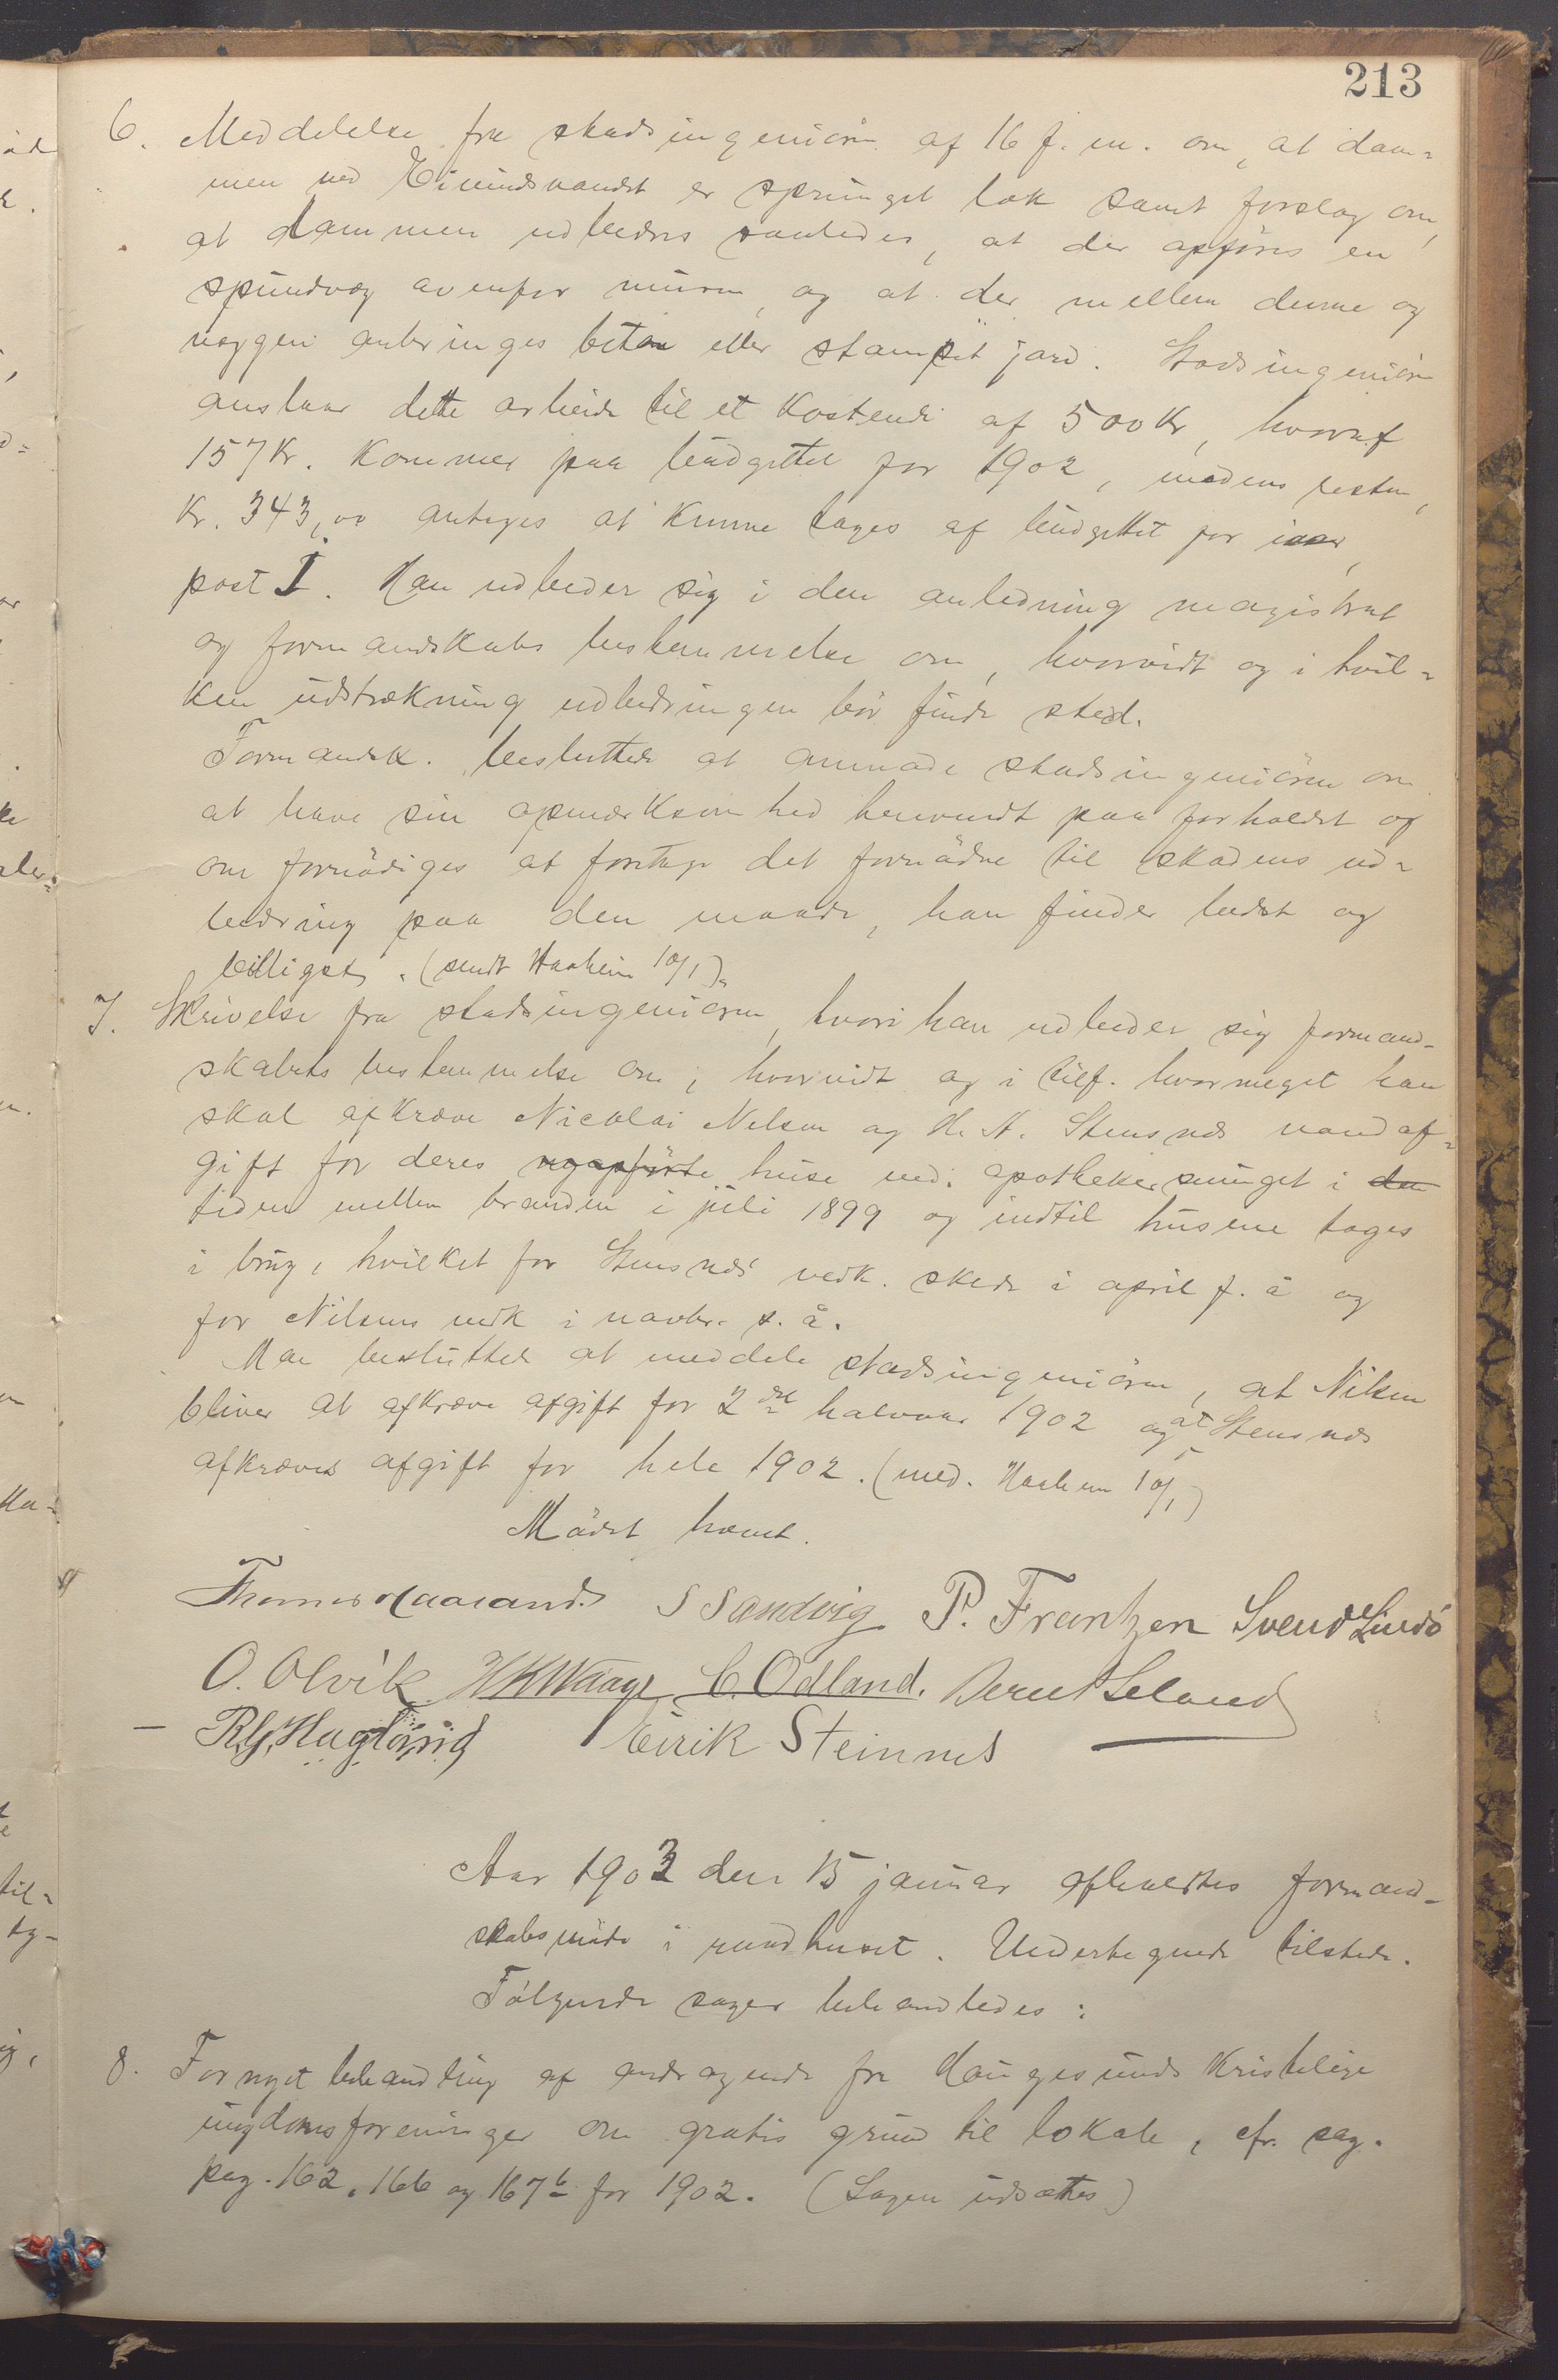 213
6. Meddelelse fra stadsingeniøren af 16 f. m. om, at dam-
men ved Eivindsvandet er sprunget læk samt forslag om,
at dammen udbedres saaledes, at der opføres en
spundvæg ovenfor muren, og at der mellem denne og
væggen anbringes beton eller stampet jord. Stadsingeniøren
anslaar dette arbeide til et kostende af 500 kr, hvoraf
157 kr. kommer paa budgettet for 1902, medens resten,
kr. 343,00 antages at kunne tages af budgettet for iaar,
post I. Han udbeder sig i den anledning magistrat
og formandskabs bestemmelse om, hvorvidt og i hvil-
ken udstrækning udbedringen bør finde sted.
Formandsk. besluttede at anmode stadsingeniøren om
at have sin opmærksomhed henvendt paa forholdet og
om fornødiges at foretage det fornødne til skadens ud-
bedring paa den maade, han finder bedst og
billigst. (sendt Haaheim 10/1).
7. Skrivelse fra stadsingeniøren, hvori han udbeder sig formand-
skabets bestemmelse om, hvorvidt og i tilf. hvormeget han
skal afkræve Nicolai Nilsen og H. A. Stensnes vandaf-
gift for deres nyopførte huse ved apothekersmuget i den
tiden mellem branden i juli 1899 og indtil husene toges
i brug, hvilket for Stensnes' vedk. skede i april f. å og
for Nilsens vedk i novbr. s. å.
Man besluttede at meddele stadsingeniøren, at Nilsen
bliver at afkræve afgift for 2det halvaar 1902 og at Stensnes
afkræves afgift for hele 1902. (med. Haaheim 10/1)
Mødet hævet.
Thomas Haaland. S Sandvig P. Frantzen Svend Lindø
O. Olvik HKWaage C. Odland. Bernt Leland
- R.G. Hagland Eirik Steinnes
Aar 1903 den 15 januar afholdtes formand-
skabsmøde i raadhuset. Undertegnede tilstede.
Følgende sager behandledes:
8. Fornyet behandling af andragende fra Haugesunds kristelige
ungdomsforeninger om gratis grund til lokale, cfr. sag.
pag. 162, 166 og 167 b for 1902. (Sagen udsættes)